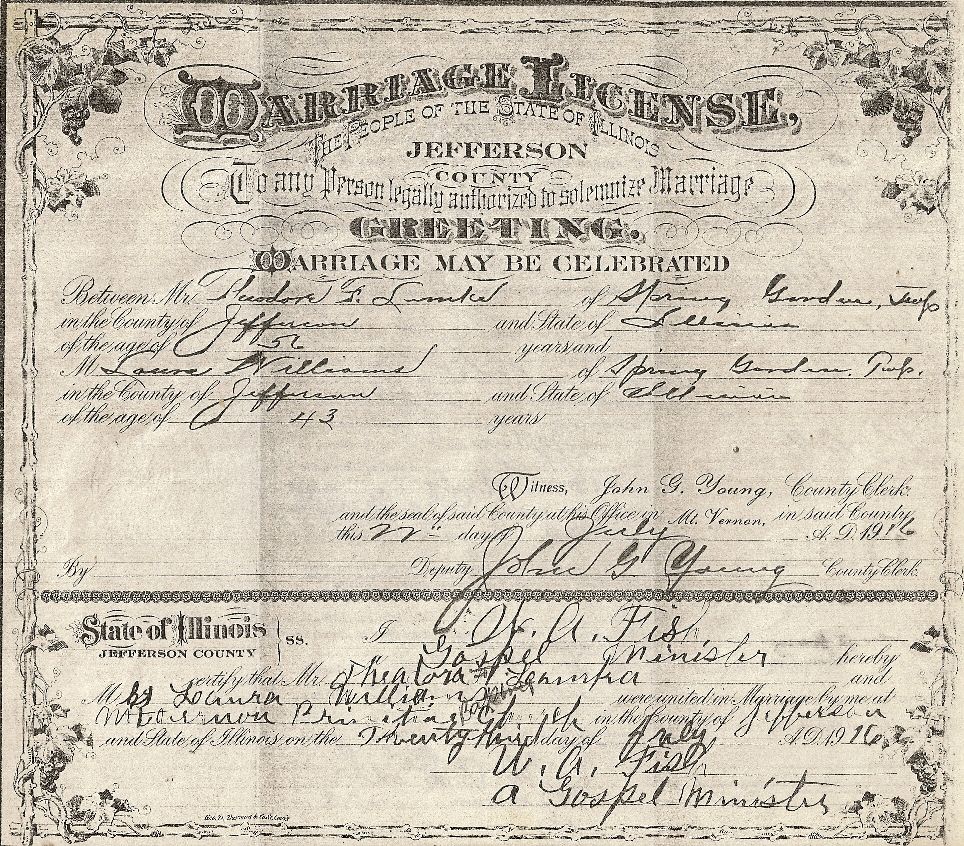 MARRIAGE LICENSE,
THE PEOPLE OF THE STATE OF ILLINOIS
JEFFERSON
COUNTY
To any Person legally authorized to solemnize Marriage
GREETING.
MARRIAGE MAY BE CELEBRATED
Between Mr. Theodore F. Lumke of Spring Garden, Twp
in the County of Jefferson and State of Illinois
of the age of 56 years and
M Laura Williams of Spring Garden Twp.
in the County of Jefferson and State of Illinois
of the age of 43 years
Witness, John G. Young, County Clerk
and the seal of said County at his Office in Mt. Vernon, in said County
this day July A.D. 1916
By Deputy John G Young County Clerk
State of Illinois
JEFFERSON COUNTY ss. I W. A. Fish,
Gospel Minister hereby
certify that Mr. and
M Laura William were united in Marriage by me at
in the County of Jefferson
and State of Illinois on the day of July A.D. 1916
W. A. Fish
a Gospel Minister